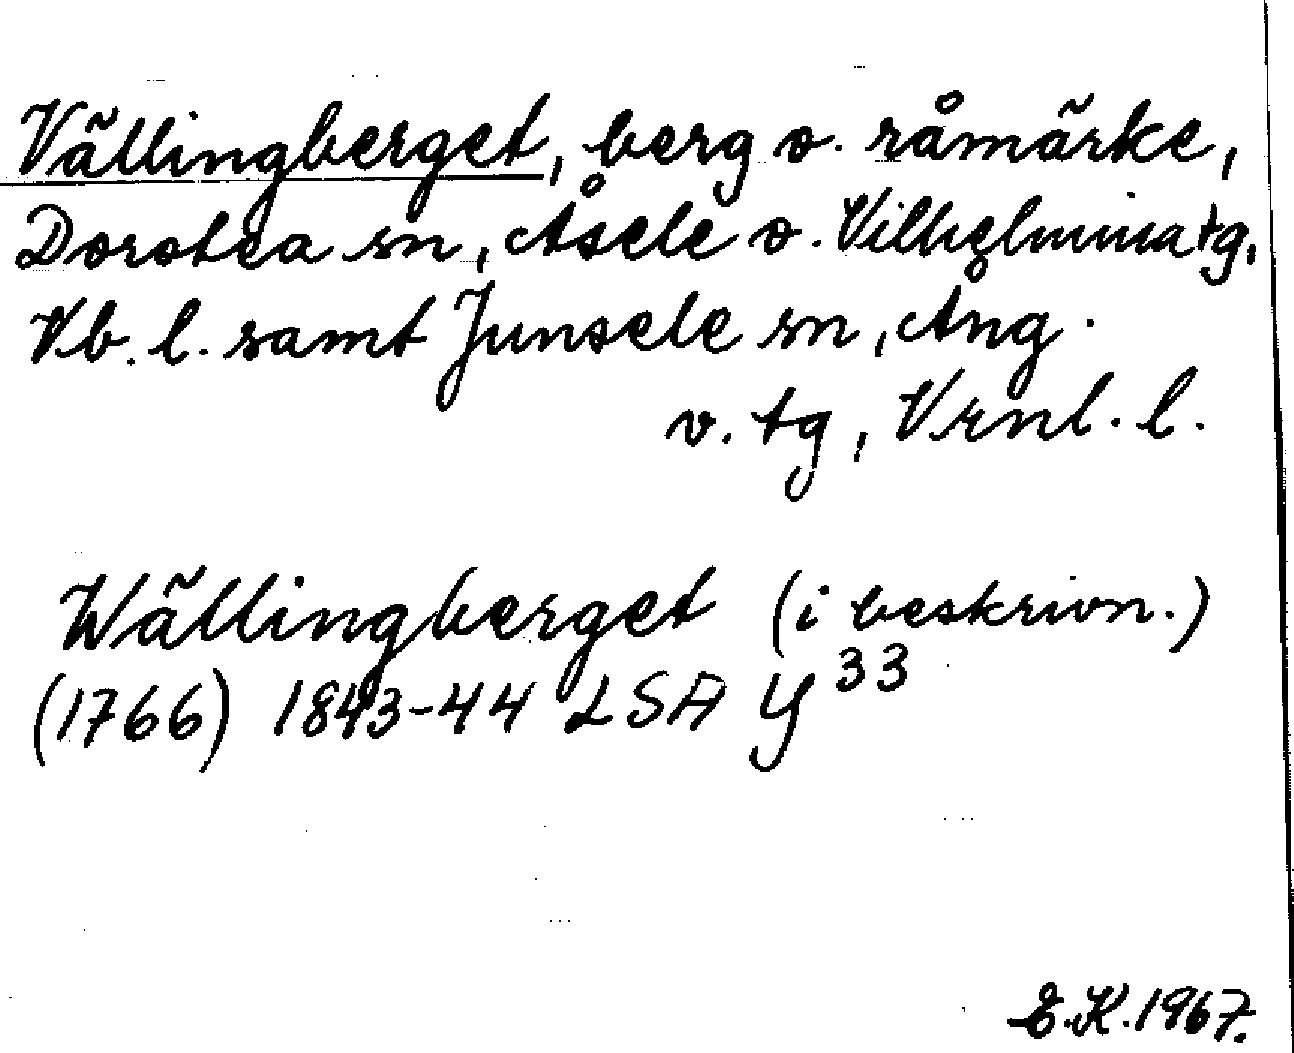 Vällingberget, berg o. råmärke,
Dorotea sn, Åsele o. Vilhelmina tg,
Vb. l. samt Junsele sn, Ång.
v. tg, Vrnl. l.
Wällingberget (i beskrivn.)
(1766) 1843-44 LSA Y³³
E.K. 1967.